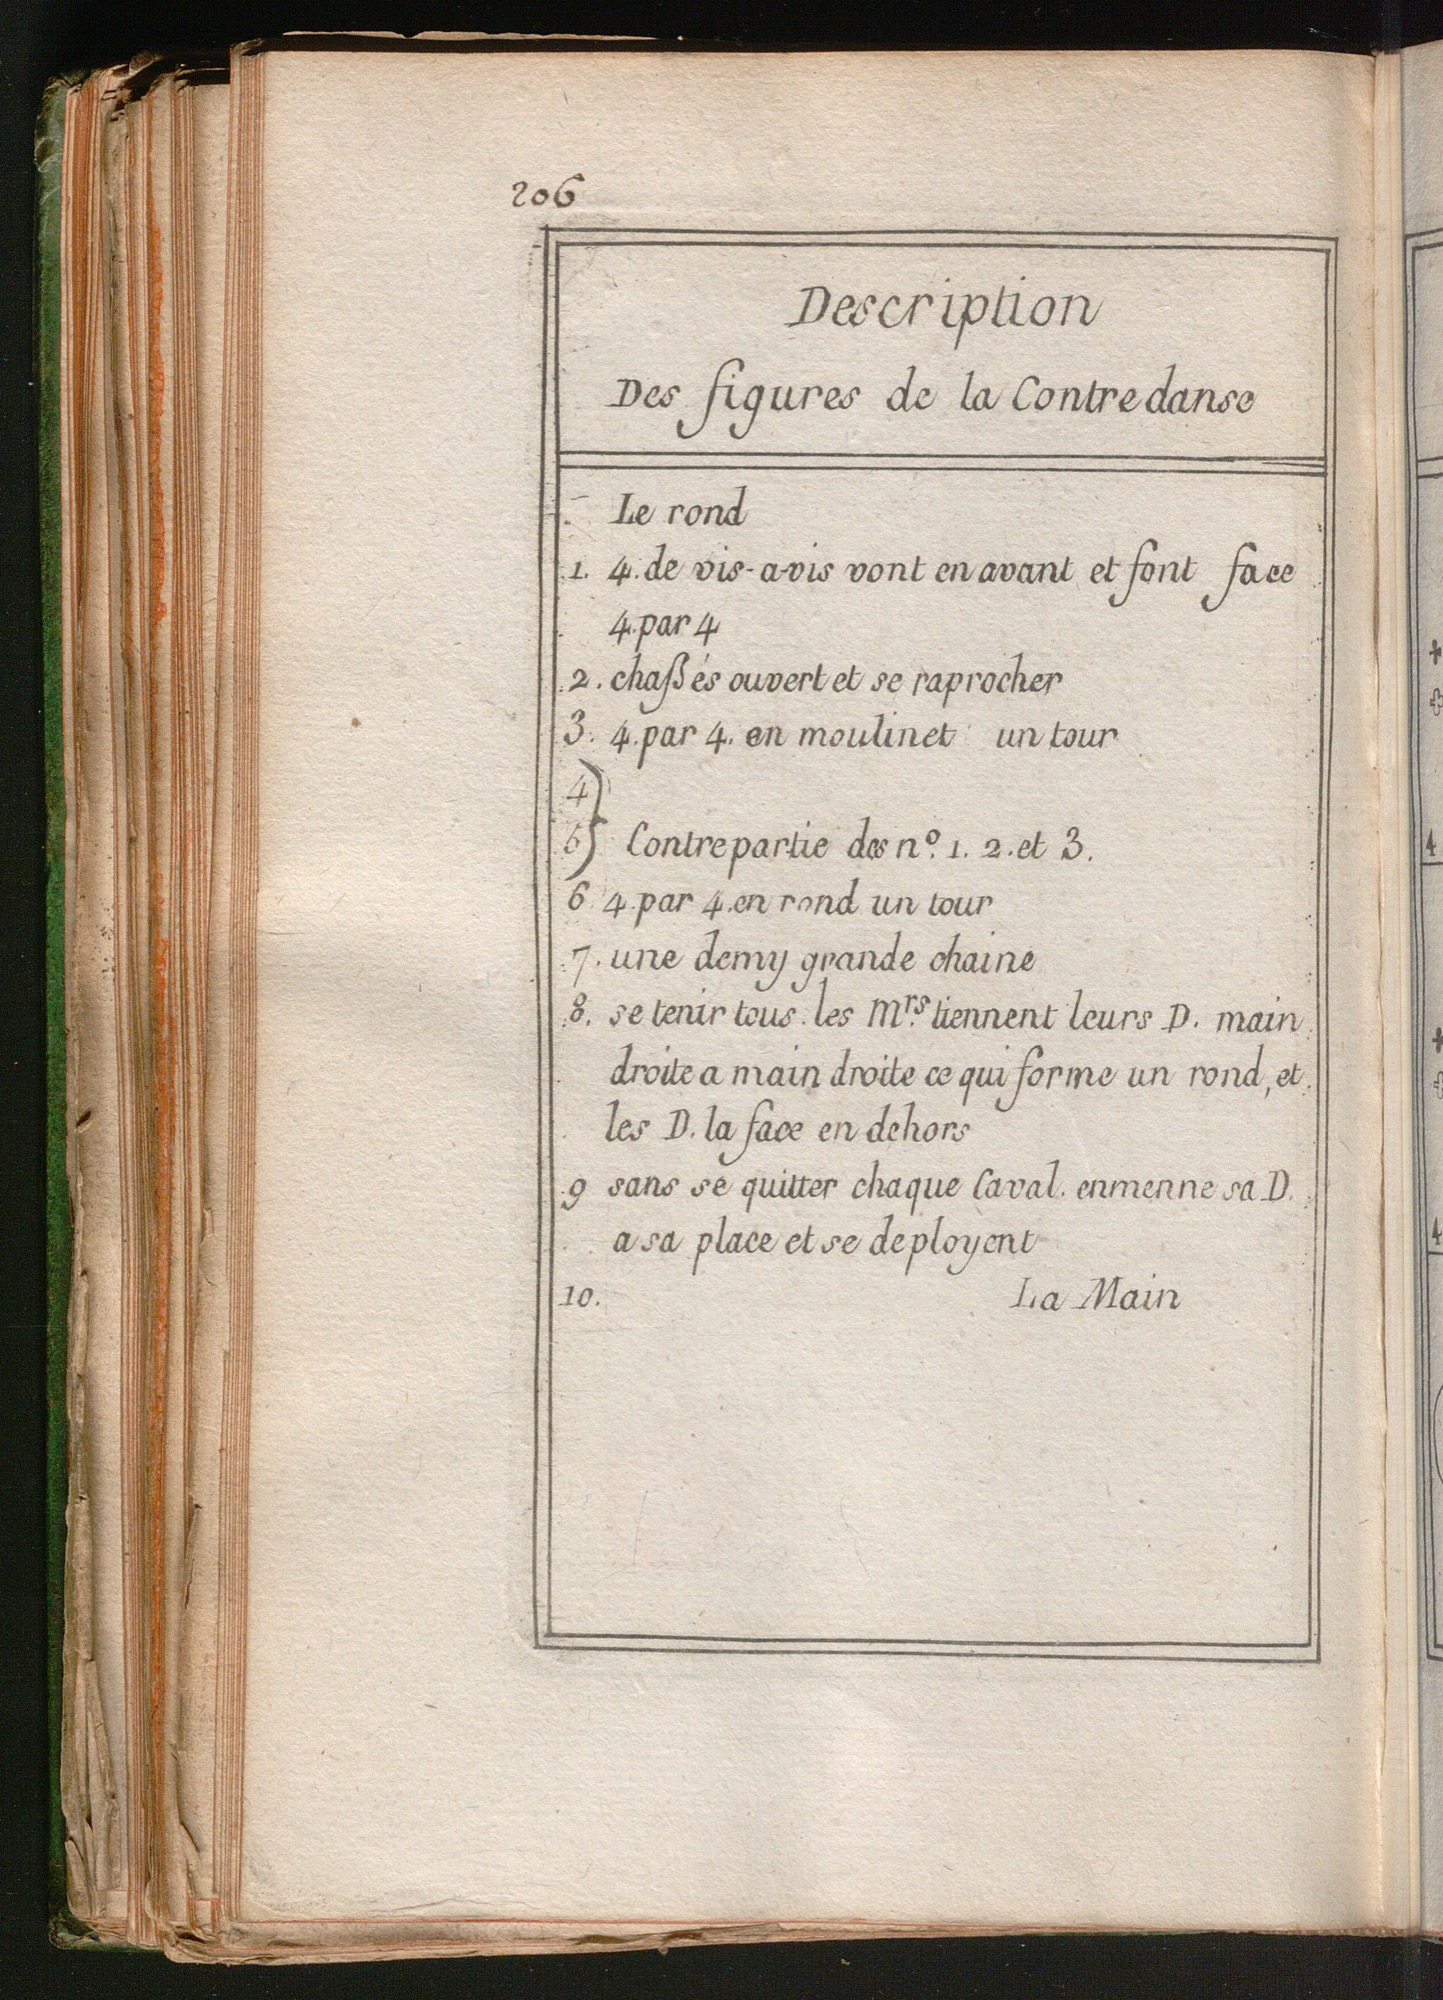 206
Description
Des figures de la Contredanse
Le rond
1. 4. de vis-a-vis vont en avant et font face
4. par 4
2. chaßés ouvert et se raprocher
3. 4. par 4. en moulinet un tour
4)
5) Contrepartie des nº. 1. 2. et 3.
6 4. par 4. en rond un tour
7. une demy grande chaine
8. se tenir tous. les Mrs. tiennent leurs D. main
droite a main droite ce qui forme un rond, et
les D. la face en dehors
9 sans se quitter chaque Caval. enmenne sa D.
a sa place et se deployent
10. La Main
4
4